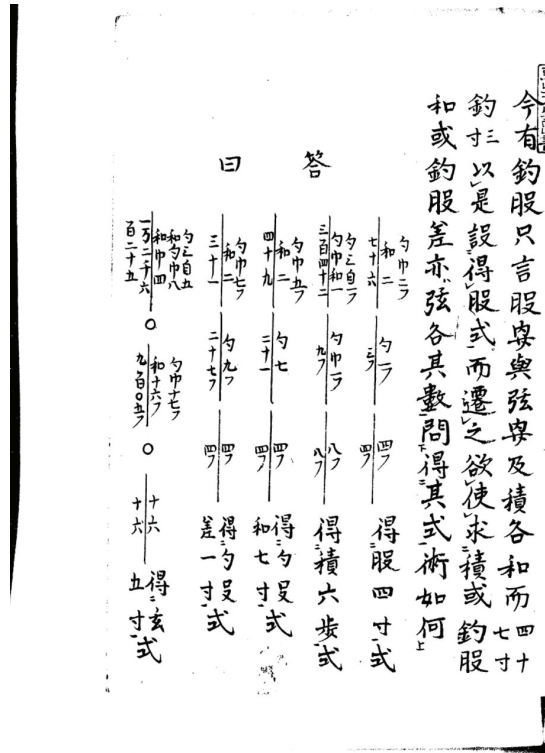 今有鈎股只言股再與弦再及積各和而四十七寸
鈎三寸以是設得股式而遷之欲使求積或鈎股
和或鈎股差亦弦各其數問得其式術如何
答曰
勾巾二フ 和二 七十六
勾一フ 三フ
四フ 四フ
得股四寸式
勾再自一フ 勾巾和一 三百四十二
勾巾一フ 九フ
八フ 八フ
得積六歩式
勾巾五フ 和二 四十九
勾七 二十一
四フ 四フ
得勾股和七寸式
勾巾七フ 和二 三十一
勾九フ 二十七フ
四フ 四フ
得勾股差一寸式
勾再自五 和勾巾八 和巾四 一万二千六百二十五
〇
勾巾十七フ 和十六フ 九百〇五フ
〇
十六 十六
得玄五寸式